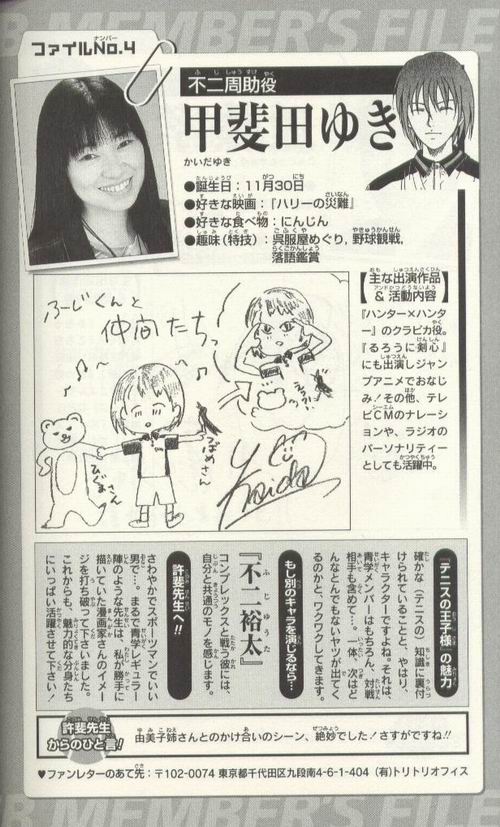 B MEMBER'S FILE
ファイルNo.4
不二周助役
甲斐田ゆき
かいだゆき
●誕生日：11月30日
●好きな映画：『ハリーの災難』
●好きな食べ物：にんじん
●趣味（特技）：呉服屋めぐり，野球観戦，
落語鑑賞
【主な出演作品
＆活動内容】
『ハンター×ハンタ
ー』のクラピカ役。
『るろうに剣心』
にも出演しジャン
プアニメでおなじ
み！その他、テレ
ビCMのナレーシ
ョンや、ラジオの
パーソナリティー
としても活躍中。
ふーじくんと
仲間たちっ
ひぐまさん
つばめさん
Kaida
『テニスの王子様』の魅力
確かな（テニスの）知識に裏付
けられていることと、やはり、
キャラクターですよね。それは、
青学メンバーはもちろん、対戦
相手も含めて…。一体、次はど
んなとんでもないヤツが出てく
るのかと、ワクワクしてきます。
もし別のキャラを演じるなら…
『不二裕太』
コンプレックスと戦う彼には、
自分と共通のモノを感じます。
許斐先生へ!!
さわやかでスポーツマンでいい
男で…。まるで青学レギュラー
陣のような先生は、私が勝手に
描いていた漫画家さんのイメー
ジを打ち破って下さいました。
これからも、魅力的な分身たち
にいっぱい活躍させて下さい！
許斐先生
からのひと言！
由美子姉さんとのかけ合いのシーン、絶妙でした！さすがですね!!
♥ファンレターのあて先：〒102-0074 東京都千代田区九段南4-6-1-404 （有）トリトリオフィス
B MEMBER'S FILE